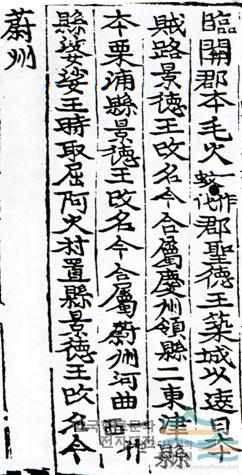 臨關郡本毛火一作蚊伐郡聖德王築城以遮日本
賊路景德王改名今合屬慶州領縣二東津縣
本栗浦縣景德王改名今合屬蔚州河曲一作西
縣婆娑王時取屈阿火村置縣景德王改名今
蔚州
grandculture.net